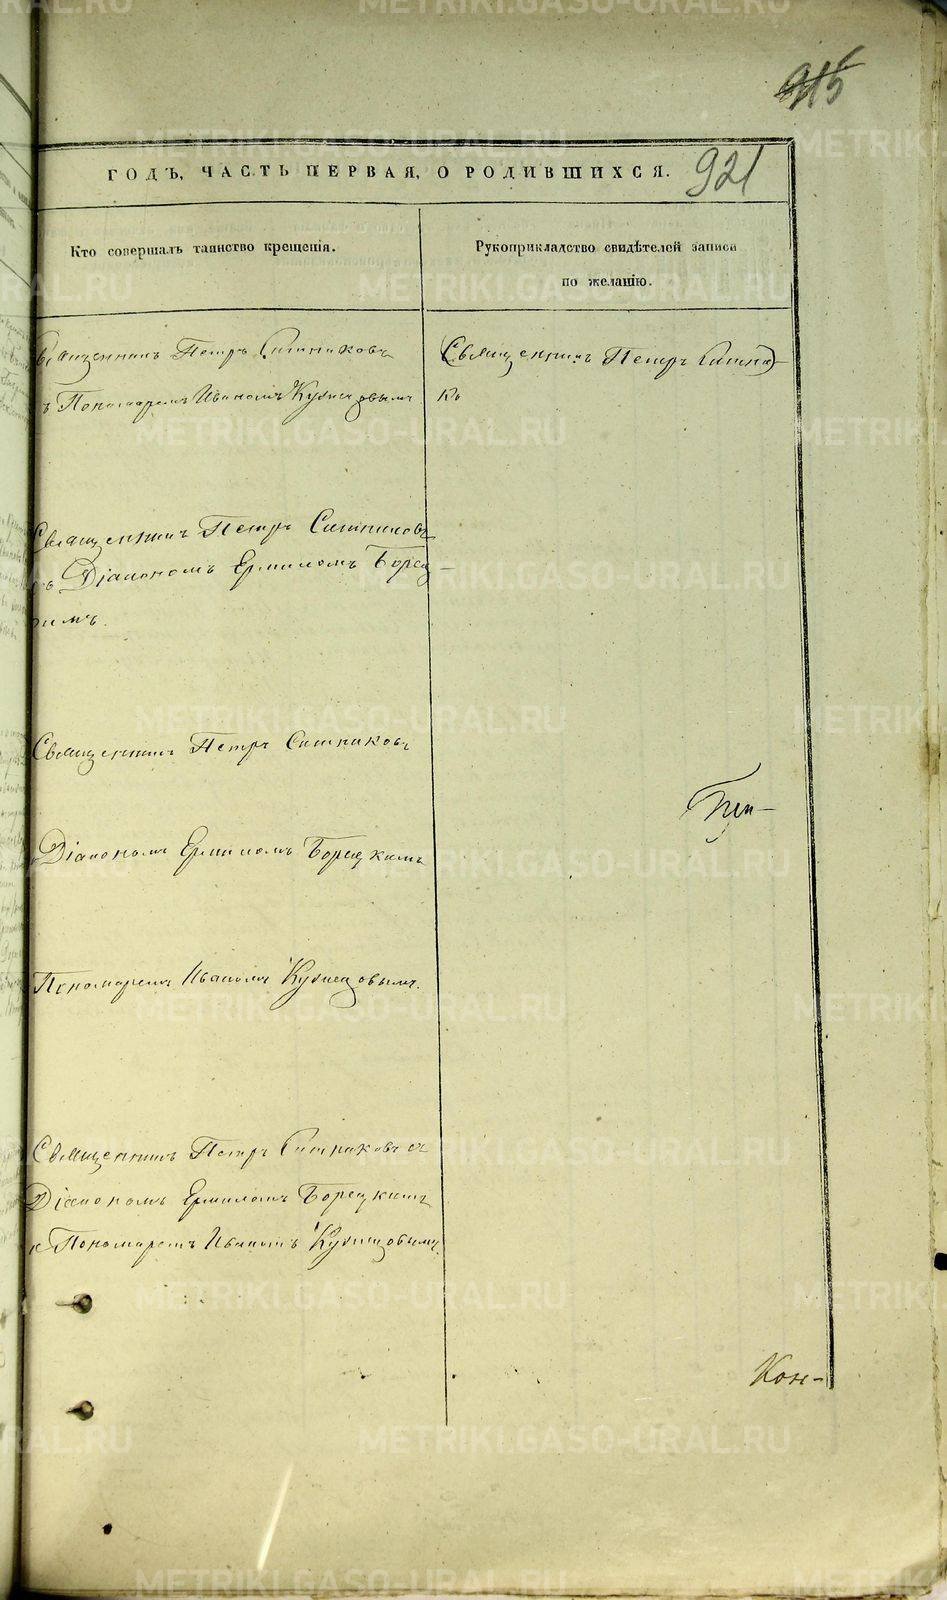 ГОДЪ, ЧАСТЬ ПЕРВАЯ, О РОДИВШИХСЯ.
921
Кто совершалъ таинство крещенія.
Рукоприкладство свидѣтелей записи
по желанію.
Священникъ Петръ Ситниковъ
Пономаремъ Иваномъ Кузнецовымъ
Священникъ Петръ Ситни-
Священникъ Петръ Ситниковъ
съ Діакономъ Ермиломъ Борец-
кимъ.
Священникъ Петръ Ситниковъ
Діакономъ Ермиломъ Борецкимъ
Пономаремъ Иваномъ Кузнецовымъ.
Священникъ Петръ Ситниковъ съ
Діакономъ Ермиломъ Борецкимъ
и Пономаремъ Иваномъ Кузнецовымъ.
Кон-
METRIKI.GASO-URAL.RU